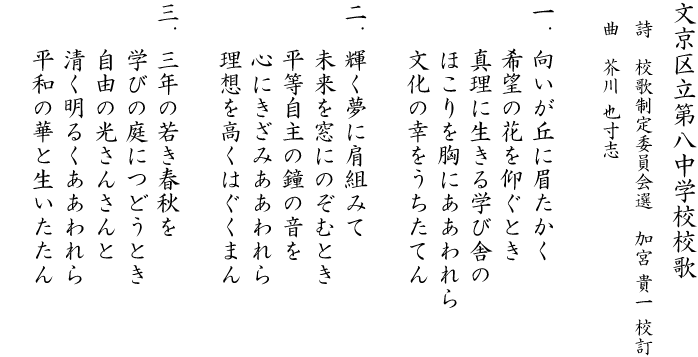 文京区立第八中学校校歌
詩　校歌制定委員会選　加宮貴一校訂
曲　芥川也寸志
一．向いが丘に眉たかく
希望の花を仰ぐとき
真理に生きる学び舎の
ほこりを胸にああわれら
文化の幸をうちたてん
二．輝く夢に肩組みて
未来を窓にのぞむとき
平等自主の鐘の音を
心にきざみああわれら
理想を高くはぐくまん
三．三年の若き春秋を
学びの庭につどうとき
自由の光さんさんと
清く明るくああわれら
平和の華と生いたたん